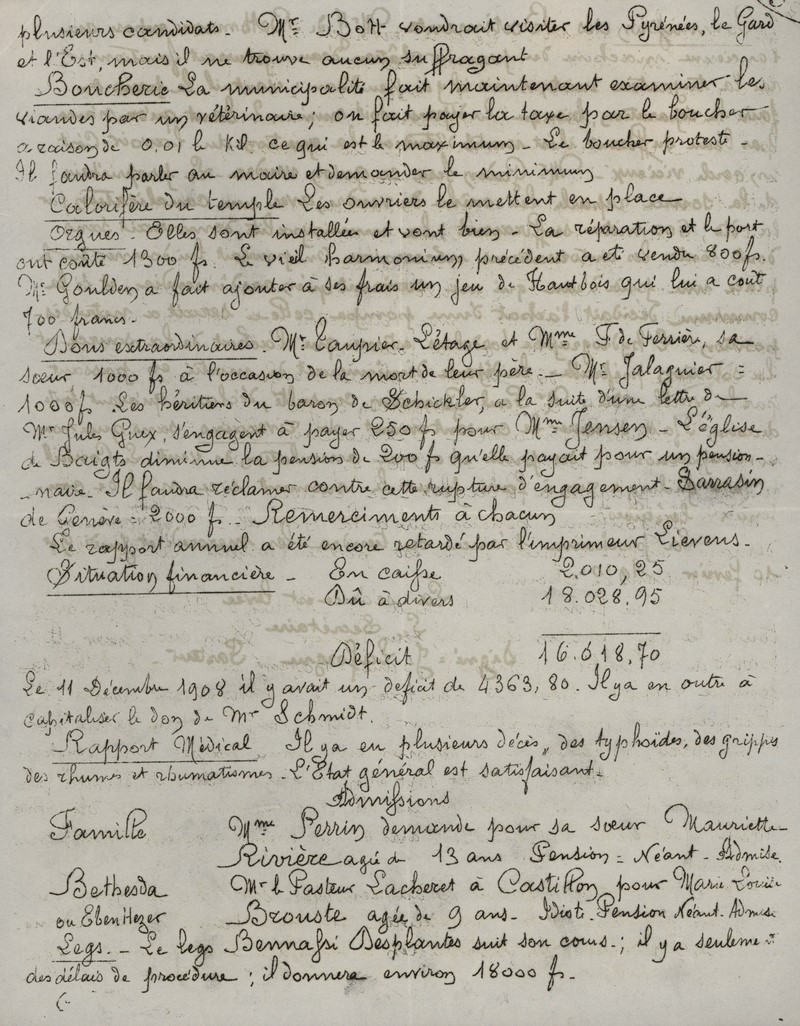 plusieurs candidats. Mr Bott voudrait visiter les Pyrénées, le Gard
et l'Est, mais il ne trouve aucun suffragant
Boucherie La municipalité fait maintenant examiner les
viandes par un vétérinaire; on fait payer la taxe par le boucher
a raison de 0,01 le Kil. ce qui est le maximum - Le boucher proteste -
Il faudra parler au maire et demander le minimum
Calorifère du temple Les ouvriers le mettent en place
Orgues - Elles sont installées et vont bien - La réparation et le port
ont coûté 1300 fs. Le vieil harmonium précédent a été vendu 800 fs.
Mr Goulden a fait ajouter à ses frais un jeu de Hautbois qui lui a couté
700 francs -
Dons extraordinaires. Mr Laupier-Létage et Mme F. de Ferrière, sa
sœur 1000 fs à l'occasion de la mort de leur père. - Mr Jalaguier =
1000 fs Les héritiers du baron de Schickler, a la suite d'une lettre de
Mr Jules Guex, s'engagent à payer 250 fs pour Mme Jensen - L'église
de Baigts diminue la pension de 200 fs qu'elle payait pour un pension-
-naire - Il faudra réclamer contre cette rupture d'engagement - Sarrasin
de Genève = 2000 fs - Remerciments à chacun
Le rapport annuel a été encore retardé par l'imprimeur Lievens -
Situation financière - En caisse 2.010,25
Dû à divers 18.028,95
Déficit 16.018,70
Le 11 Décembre 1908 il y avait un deficit de 4363,80. Il y a en outre à
capitaliser le don de Mr Schmidt.
Rapport Médical Il y a eu plusieurs décès, des typhoïdes, des grippes
des rhumes et rhumatismes - L'Etat général est satisfaisant -
Admissions
Famille Mme Perrin demande pour sa sœur Mauriette
Rivière agée de 13 ans Pension = Néant - Admise.
Bethesda Mr le Pasteur Lacheret à Castillon pour Marie Louise
ou Eben Hezer Brouste agée de 9 ans - Idiote - Pension Néant - Admise
Legs. - Le legs Desplantes suit son cours -; il y a seuleme
des délais de procédure; il donnera environ 18000 fs -